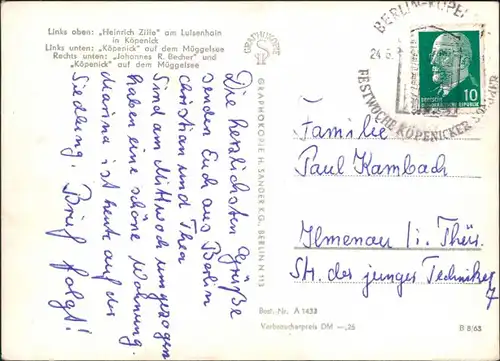 Links oben: „Heinrich Zille" am Luisenhain
in Köpenick
Links unten: „Köpenick" auf dem Müggelsee
Rechts unten: „Johannes R. Becher" und
„Köpenick" auf dem Müggelsee
GRAPHOKOPIE
GRAPHOKOPIE H. SANDER KG., BERLIN N 113
Die herzlichsten Grüße
senden Euch aus Berlin
Christian und Thea
Sind am Mittwoch umgezogen
haben eine schöne Wohnung.
Marina ist heute auf der
Siedlung. Brief folgt!
BERLIN-KÖPENICK
24.6.
FESTWOCHE KÖPENICKER SOMMER
DEUTSCHE
DEMOKRATISCHE REPUBLIK
10
Familie
Paul Kambach
Ilmenau i. Thür.
Str. des jungen Technikers
7
Best.-Nr. A 1433
Verbraucherpreis DM —,25
B 8/63